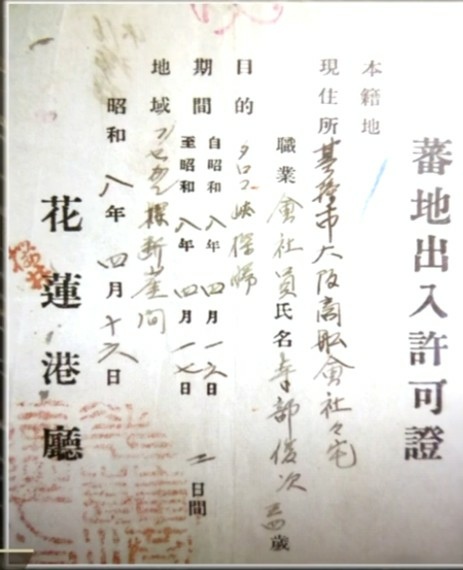 蕃地出入許可證
本籍地
現住所 基隆市大阪商船會社々宅
職業 會社員 氏名 部俊次 歳
目的 タロコ峽探勝
期間 自昭和八年四月一六日 至昭和八年四月一七日 二日間
地域 断崖間
昭和八年四月十六日
花蓮港廳